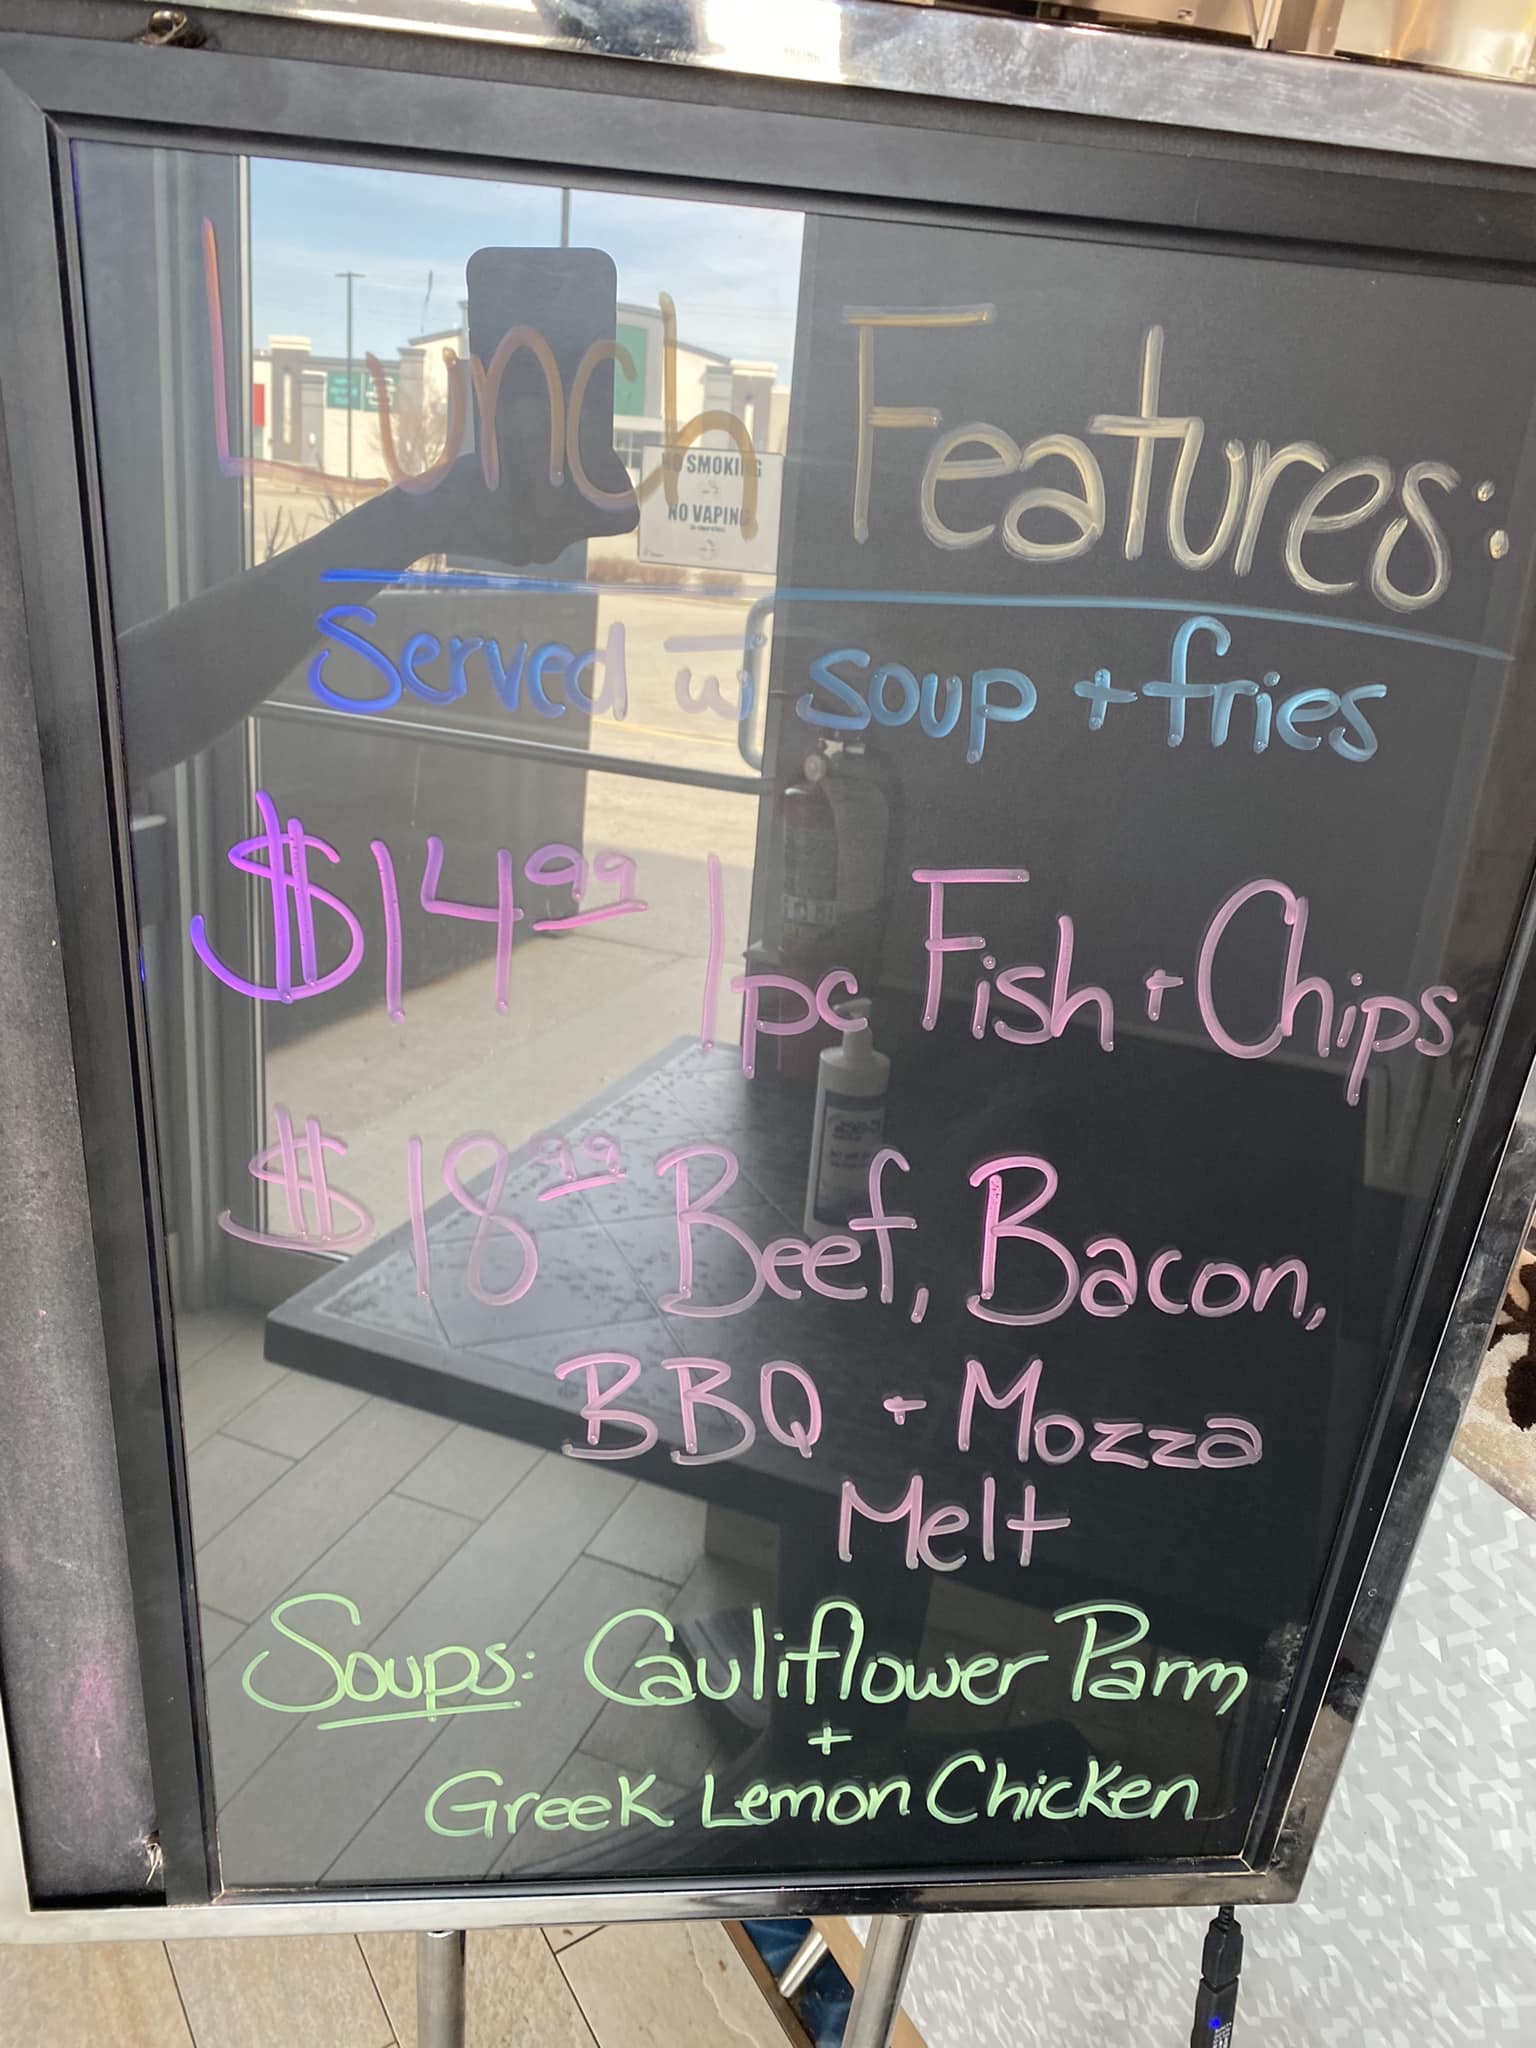 Lunch Features:
NO SMOKING
NO VAPING
Served w/ soup + fries
$14.99 1pc Fish + Chips
$18.99 Beef, Bacon,
BBQ + Mozza
Melt
Soups: Cauliflower Parm
+
Greek Lemon Chicken